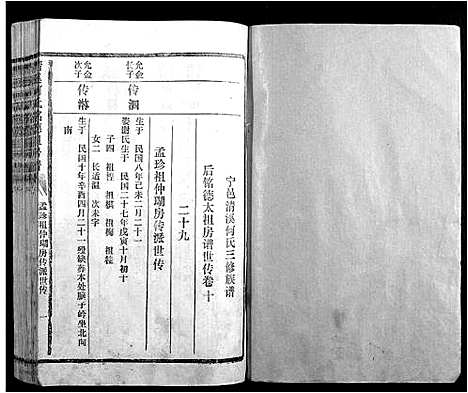 宁邑清溪何氏三修族谱
后铭德太祖房谱世传卷十
二十九
孟珍祖仲瑚房传派世传
允金长子
传泗
生于 民国八年己未二月二十一
娄谢氏生于 民国二十七年戊寅十月初十
子四 祖 祖棋 祖梅 祖桂
女二 长适温 次未字
允金次子
传
生于 民国十年辛酉四月二十一 本处 子岭坐北向
南
孟珍祖仲瑚房传派世传
一